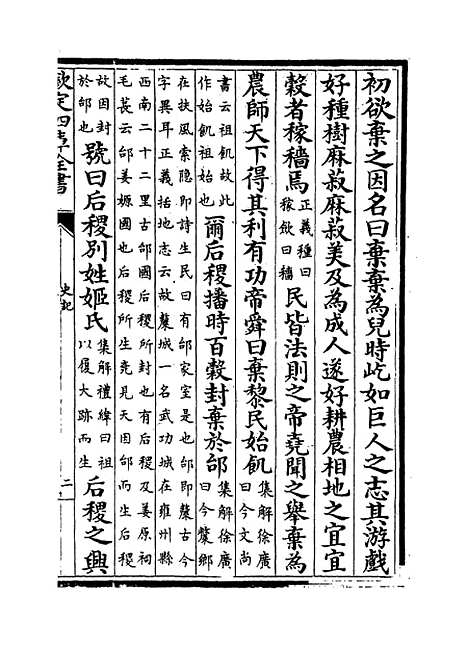 初欲棄之因名曰棄棄為兒時屹如巨人之志其游戲
好種樹麻菽麻菽美及為成人遂好耕農相地之宜宜
穀者稼穡焉正義種曰稼斂曰穡民皆法則之帝堯聞之舉棄為
農師天下得其利有功帝舜曰棄黎民始飢集解徐廣曰今文尚
書云祖飢故此作始飢祖始也爾后稷播時百穀封棄於邰集解徐廣曰今斄鄉
在扶風索隱即詩生民曰有邰家室是也邰即斄古今字異耳正義括地志云故斄城一名武功城在雍州縣
西南二十二里古邰國后稷所封也有后稷及姜原祠毛萇云邰姜嫄國也后稷所生堯見天因邰而生后稷
故因封於邰也號曰后稷別姓姬氏集解禮緯曰祖以履大跡而生后稷之興
欽定四庫全書
史記
二